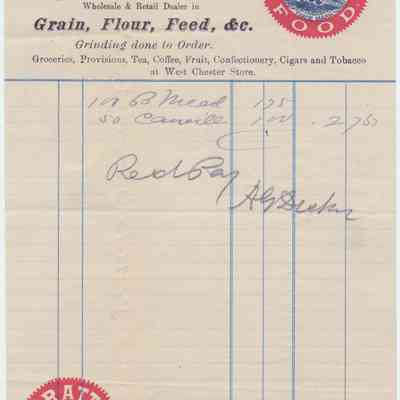 Wholesale & Retail Dealer in
Grain, Flour, Feed, &c.
Grinding done to Order.
Groceries, Provisions, Tea, Coffee, Fruit, Confectionery, Cigars and Tobacco
at West Chester Store.
FOOD
100 B. Mead 175
50 1 00 . 2 75
Recd Pay
PRATT